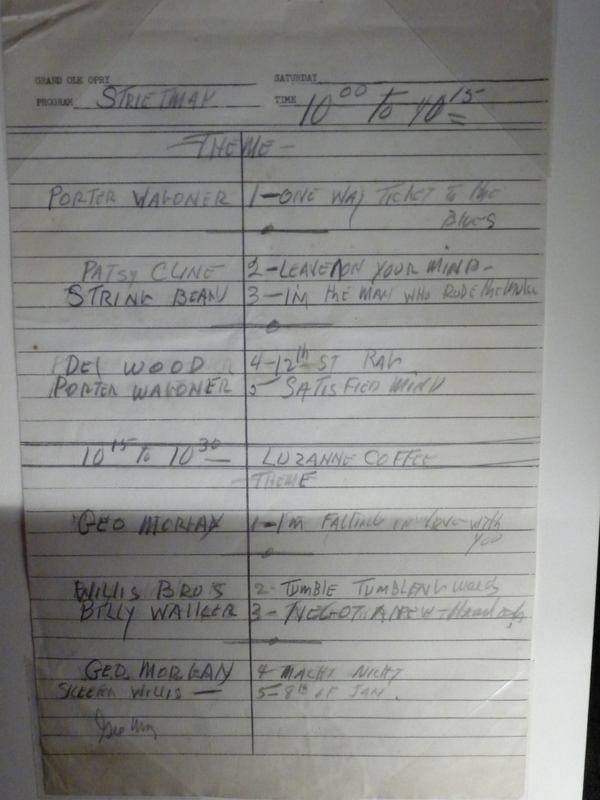 GRAND OLE OPRY SATURDAY
PROGRAM STRIETMAN TIME 10 00 TO 10 15
THEME -
PORTER WAGONER 1-ONE WAY TICKET TO THE
BLUES
PATSY CLINE 2-LEAVEN ON YOUR MIND-
STRING BEAN 3-I'M THE MAN WHO RODE THE MULE
DEL WOOD 4-12th ST RAG
PORTER WAGONER 5 SATISFIED MIND
10 15 TO 10 30 LUZANNE COFFEE
THEME
GEO MORGAN 1-I'M FALLING IN LOVE WITH
YOU
WILLIS BRO'S 2-TUMBLE TUMBLENG WEEDS
BILLY WALKER 3-
GEO. MORGAN 4-
SKEETER WILLIS - 5-8th OF JAN.